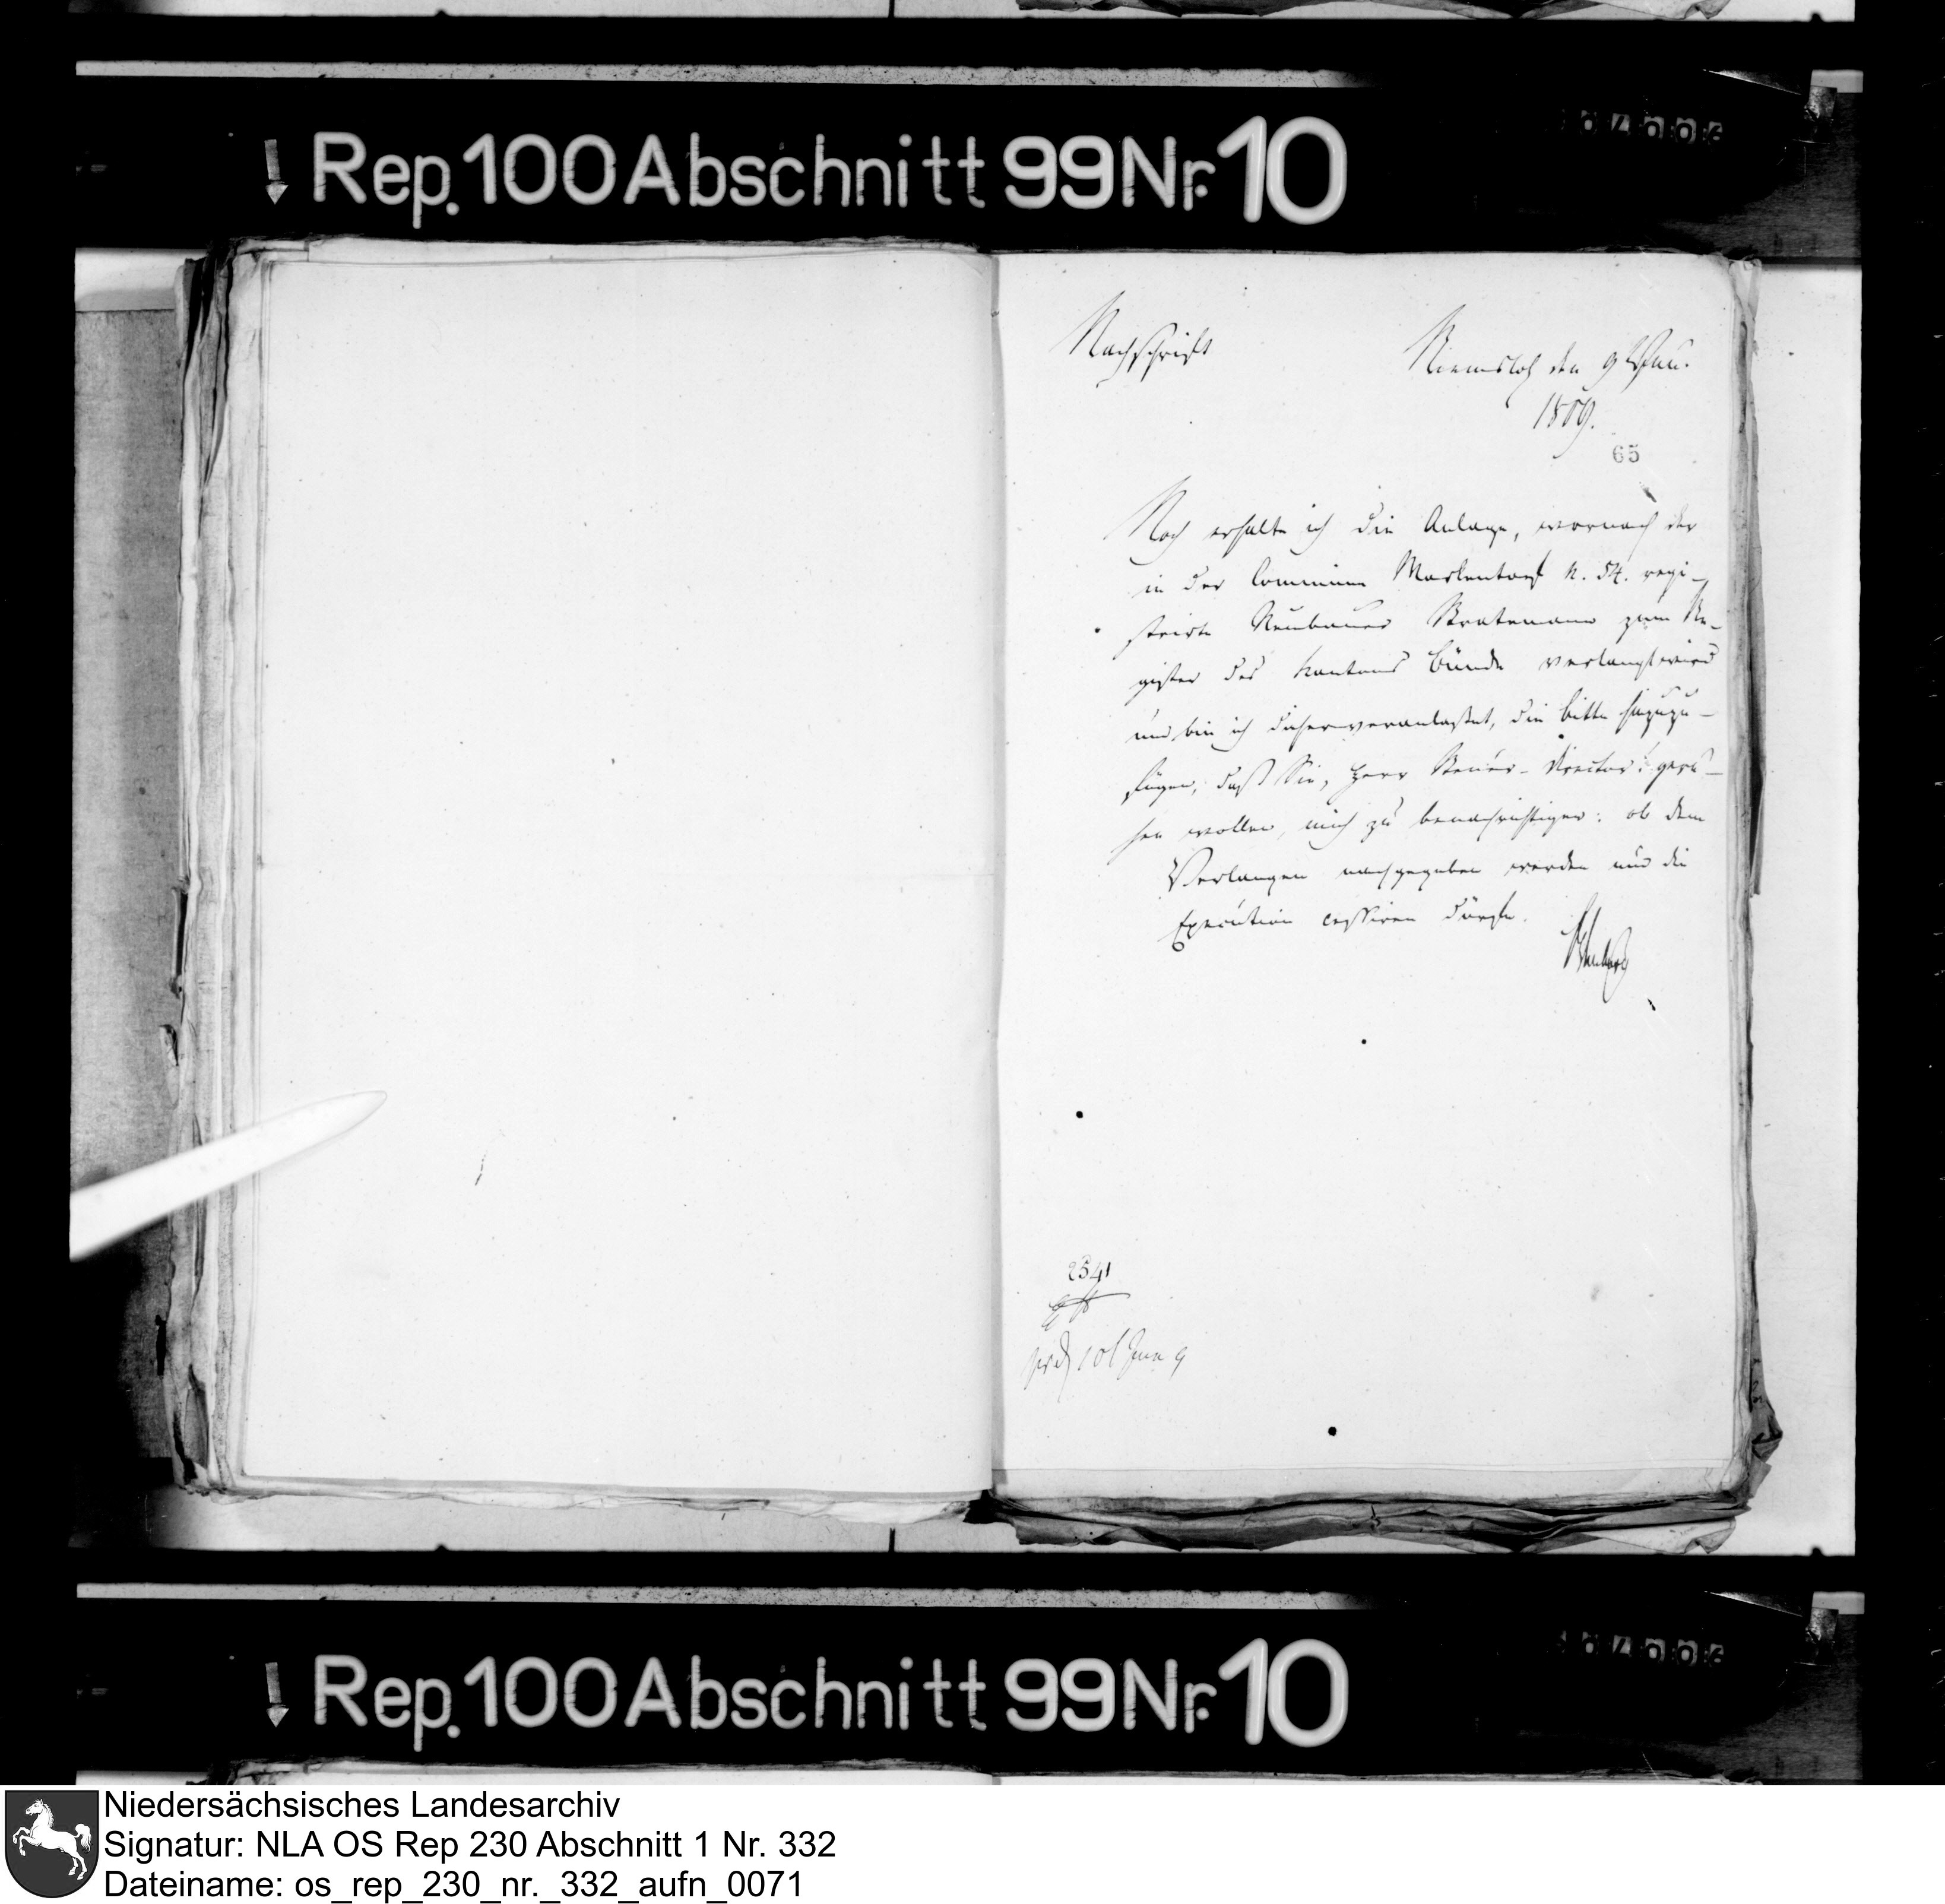 Rep. 100 Abschnitt 99 Nr. 10
Nachschrift
Riemsloh den 9t Jan.
1809.
65
Noch erhalte ich die Anlage, wornach der
in der Commune Markendorf N. 54. regi-
strirte Neubauer Stratemann zum Re-
gister des Kantons Bünde verlangt wird
und bin ich daher veranlaßet, die Bitte hinzuzu-
fügen, daß Sie, Herr Steuer-Director! geru-
hen wollen, mich zu benachrichtigen: ob dem
Verlangen nachgegeben werden und die
Execution cessiren dürfe.
2541
Rep. 100 Abschnitt 99 Nr. 10
Niedersächsisches Landesarchiv
Signatur: NLA OS Rep 230 Abschnitt 1 Nr. 332
Dateiname: os_rep_230_nr._332_aufn_0071